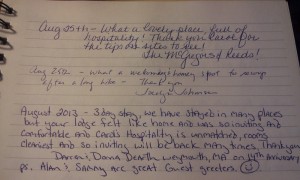 Aug 25th - What a lovely place, full of
hospitality! Thank you Carol for
the tips for sites to see!
The McGregors & Reeds!
Aug 25th - What a welcoming spot to
after a long hike - Thank you
Johnson
August 2013 - 3 day stay, we have stayed in many places
but your lodge felt like home and was so inviting and
comfortable and Carols Hospitality is unmatched, rooms
cleanest and so inviting will be back many times. Thank you
Darren & Donna Death, Weymouth, MA on 14th Anniversary
ps. Alan & Sammy are great Guest greeters.